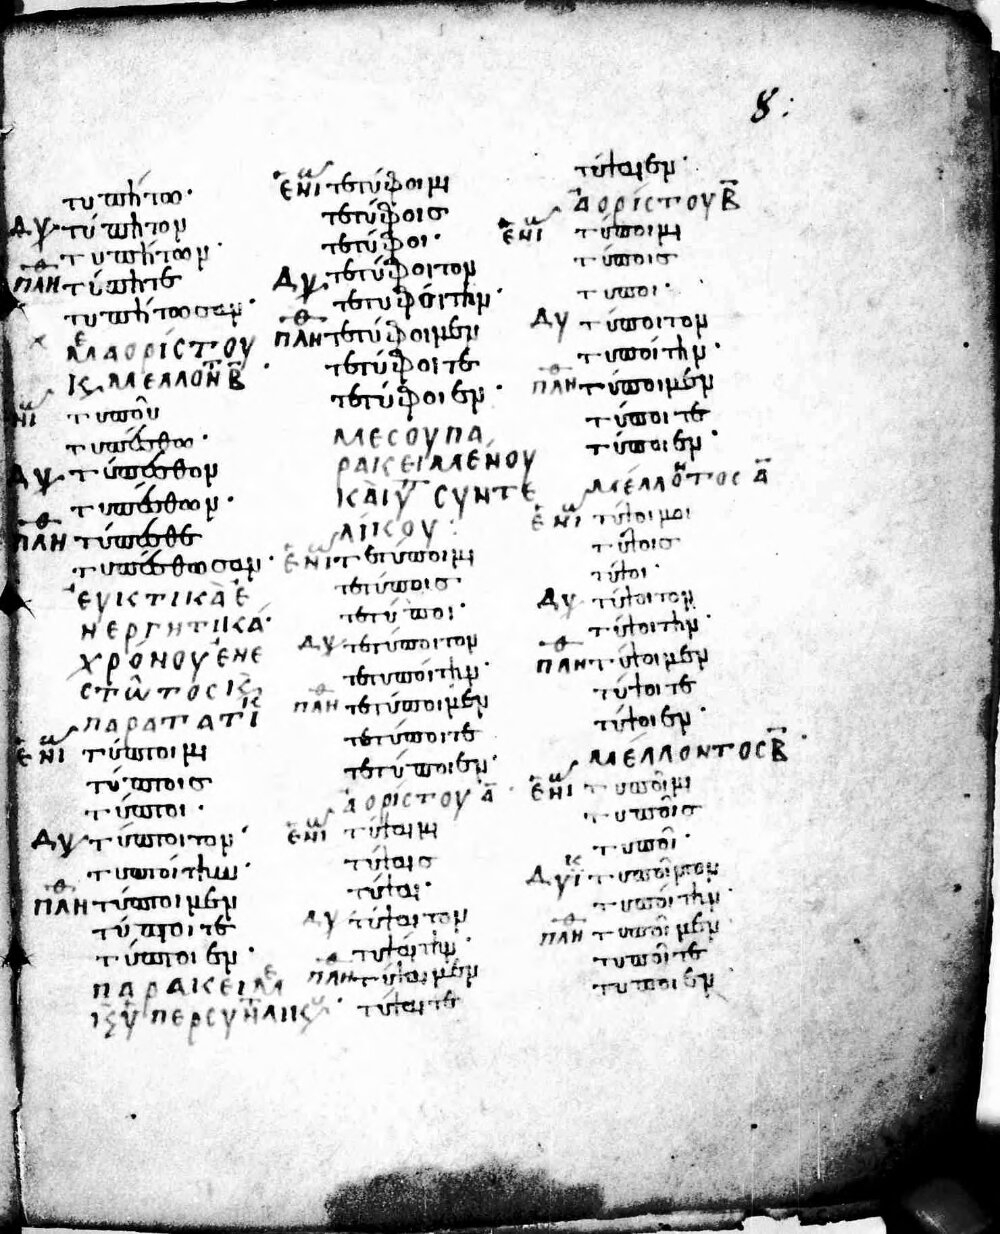 8:
τυπήτω·
Δυ τύπητον
τυπήτων·
πλη τύπητε
τυπήτωσαν·
μ ε ἀορίστου
κς μέλλον β·
ἑνι τυποῦ
τυπέσθω·
Δυ τύπεσθον
τυπέσθων·
πλη τύπεσθε
τυπέσθωσαν·
εὐκτικὰ ἐ
νεργητικά·
χρόνου ἐνε
στῶτος κς
παρατατικ
ἑνι τύπτοιμι
τύπτοις
τύπτοι·
Δυ τύπτοιτον
τυπτοίτην
πλη τύπτοιμεν
τύπτοιτε
τύπτοιεν·
παρακειμε
κς ὑπερσυντλικ
ἑνι τετύφοιμι
τετύφοις
τετύφοι·
Δυ τετύφοιτον
τετυφοίτην·
πλη τετύφοιμεν
τετύφοιτε
τετύφοιεν·
μέσου πα
ρακειμένου
καὶ ὑπ συντε
λίκου:
ἑνι τετύποιμι
τετύποις
τετύποι·
Δυ τετύποιτον
τετυποίτην·
πλη τετύποιμεν
τετύποιτε
τετύποιεν·
ἀορίστου α·
ἑνι τύψαιμι
τύψαις
τύψαι·
Δυ τύψαιτον
τυψαίτην·
πλη τύψαιμεν
τύψαιτε
τύψαιεν·
ἀορίστου β
ἑνι τύποιμι
τύποις
τύποι·
Δυ τύποιτον
τυποίτην·
πλη τύποιμεν
τύποιτε
τύποιεν·
μέλλοντος α
ἑνι τύψοιμι
τύψοις
τύψοι·
Δυ τύψοιτον
τυψοίτην·
πλη τύψοιμεν
τύψοιτε
τύψοιεν·
μέλλοντος β·
ἑνι τυποῖμι
τυποῖς
τυποῖ·
Δυϊκ τυποῖτον
τυποίτην·
πλη τυποῖμεν
τυποῖτε
τυποῖεν·